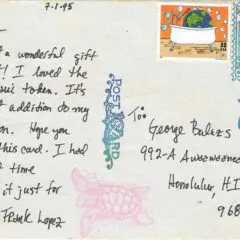 7-1-95
a wonderful gift
! I loved the
token. It's
addition to my
Hope you
this card. I had
time
it just for
Frank Lopez
POST CARD
To:
George Balazs
992-A
Honolulu, H.I
968
32